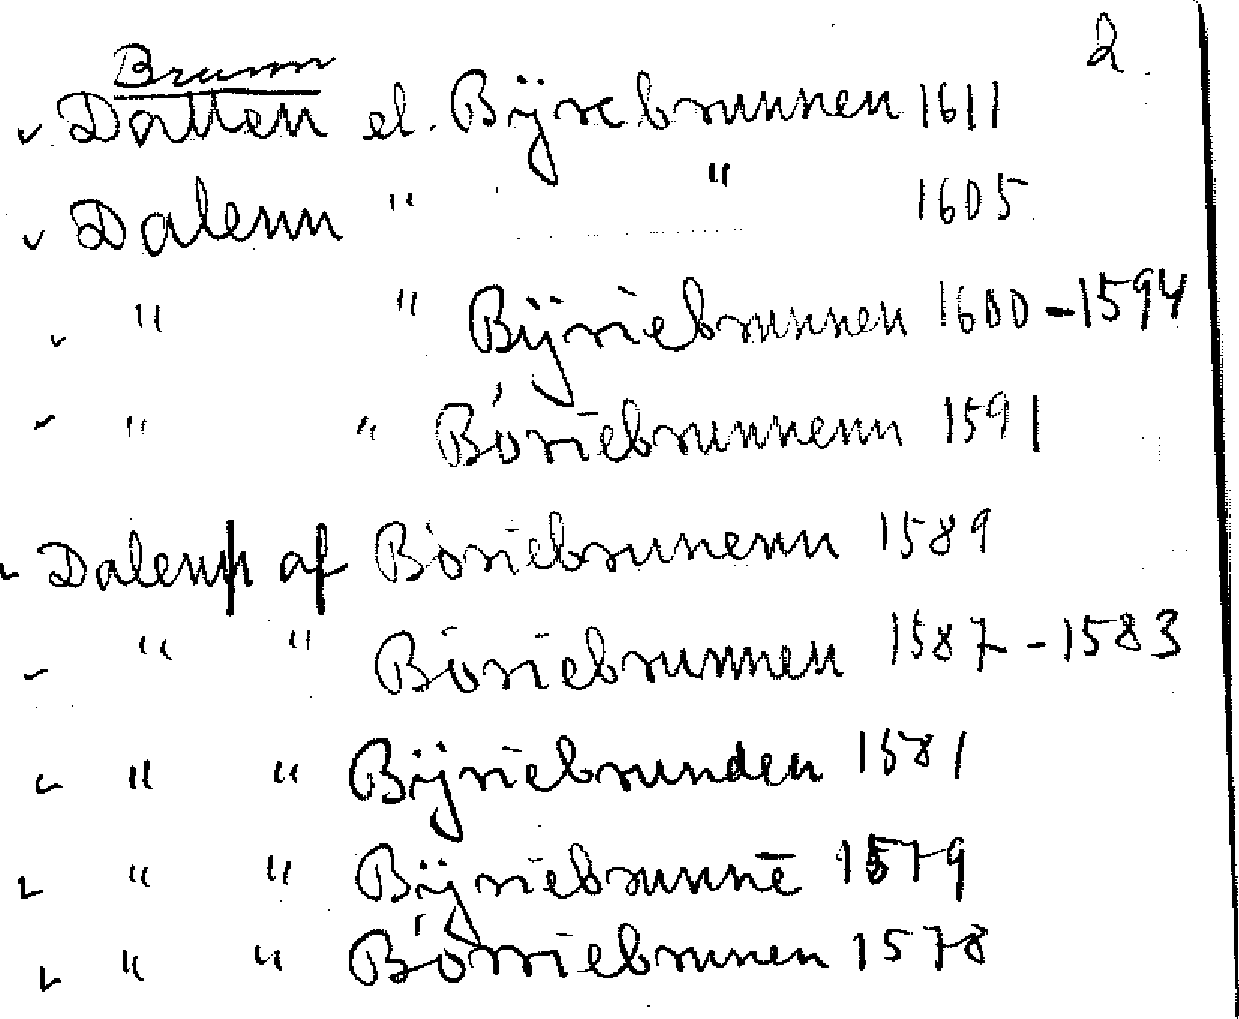 2.
Brunn
v Datten el. Bÿrebrunnen 1611
v Dalenn " " 1605
v " " Bÿriebrunnen 1600-1594
v " " Böriebrunnenn 1591
v Dalenn af Böriebrunenn 1589
v " " Böriebrunnen 1587-1583
v " " Bÿriebrunden 1581
v " " Bÿriebrunnē 1579
v " " Börriebrunen 1578